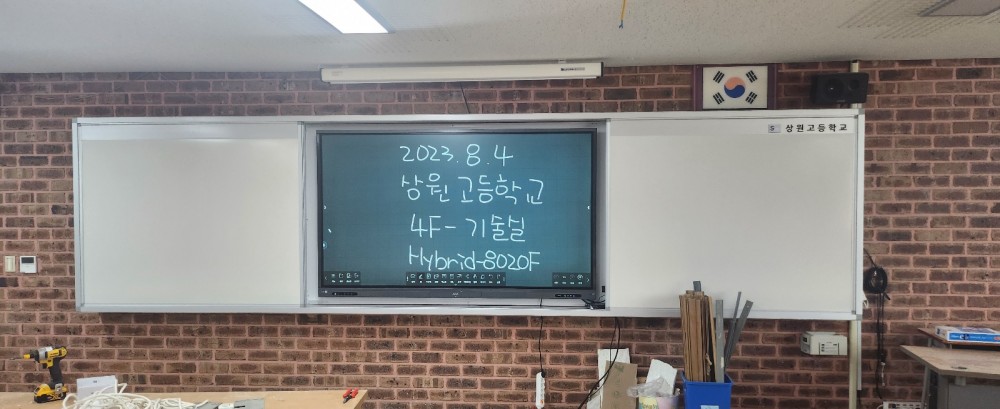 2023.8.4
상원고등학교
4F-기술실
Hybrid-8020F
상원고등학교